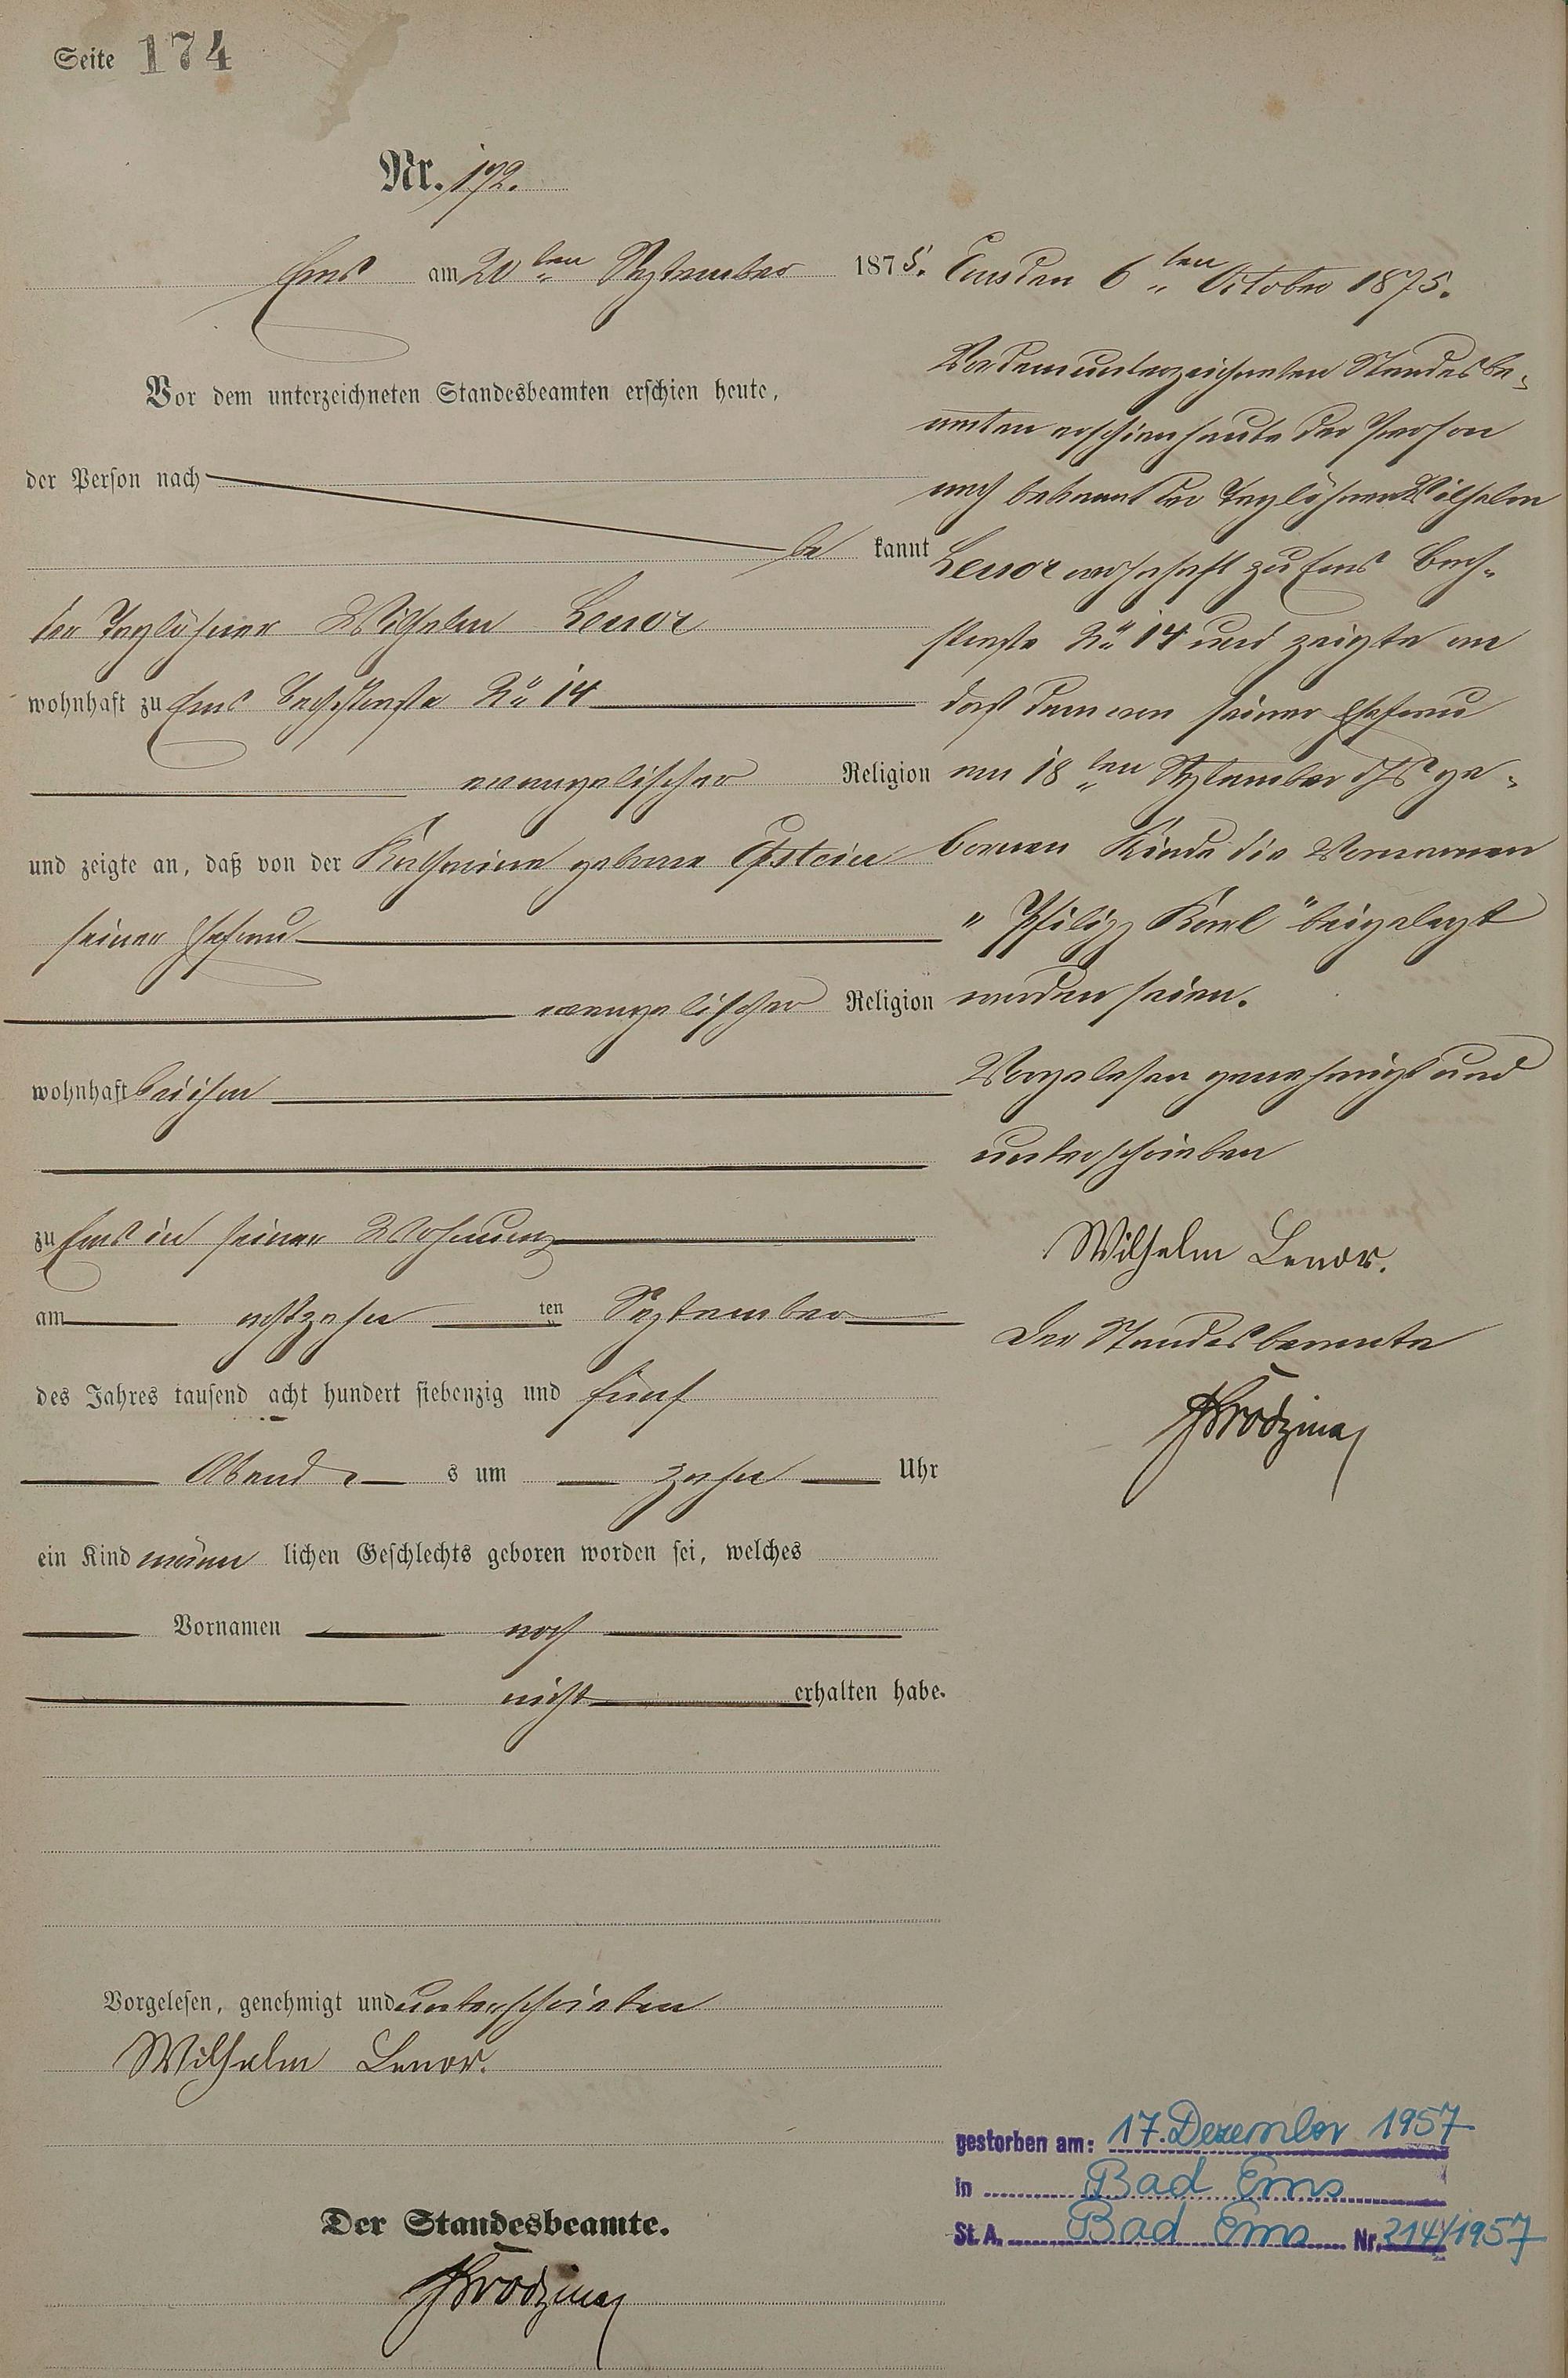 Seite 174
Nr. 172.
Ems am 20ten September 1875.
Vor dem unterzeichneten Standesbeamten erschien heute,
der Person nach
be kannt
der Taglöhner Wilhelm Lenor
wohnhaft zu Ems Bachstraße No 14
evangelischer Religion
und zeigte an, daß von der Katharine geborne Epstein
seiner Ehefrau
evangelischer Religion
wohnhaft bei ihm
zu Ems in seiner Wohnung
am achtzehn ten September
des Jahres tausend acht hundert siebenzig und fünf
Abend s um zehn Uhr
ein Kind männ lichen Geschlechts geboren worden sei, welches
Vornamen noch
nicht erhalten habe.
Vorgelesen, genehmigt und unterschrieben
Wilhelm Lenor.
Der Standesbeamte.
Ems den 6ten October 1875.
Vor dem unterzeichneten Standesbe-
amten erschien heute der Person
nach bekannt der Taglöhner Wilhelm
Lenor wohnhaft zu Ems Bach-
straße No 14 und zeigte an
daß dem von seiner Ehefrau
am 18ten September ds Js ge-
bornen Kinde die Vornamen
"Philipp Karl" beigelegt
worden seien.
Vorgelesen genehmigt und
unterschrieben
Wilhelm Lenor.
Der Standesbeamte
gestorben am: 17. Dezember 1957
in Bad Ems
St. A. Bad Ems Nr. 214/1957